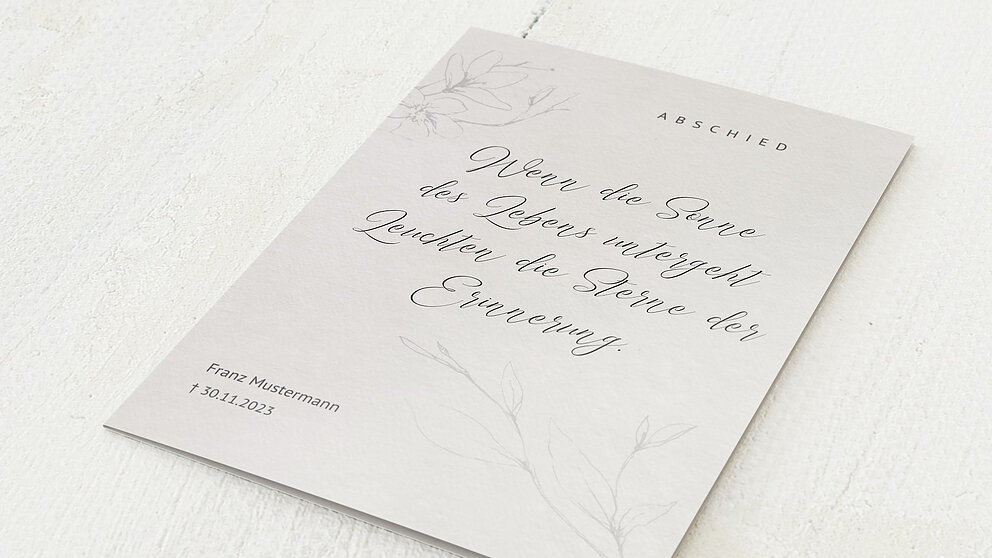 ABSCHIED
Wenn die Sonne
des Lebens untergeht
Leuchten die Sterne der
Erinnerung.
Franz Mustermann
† 30.11.2023